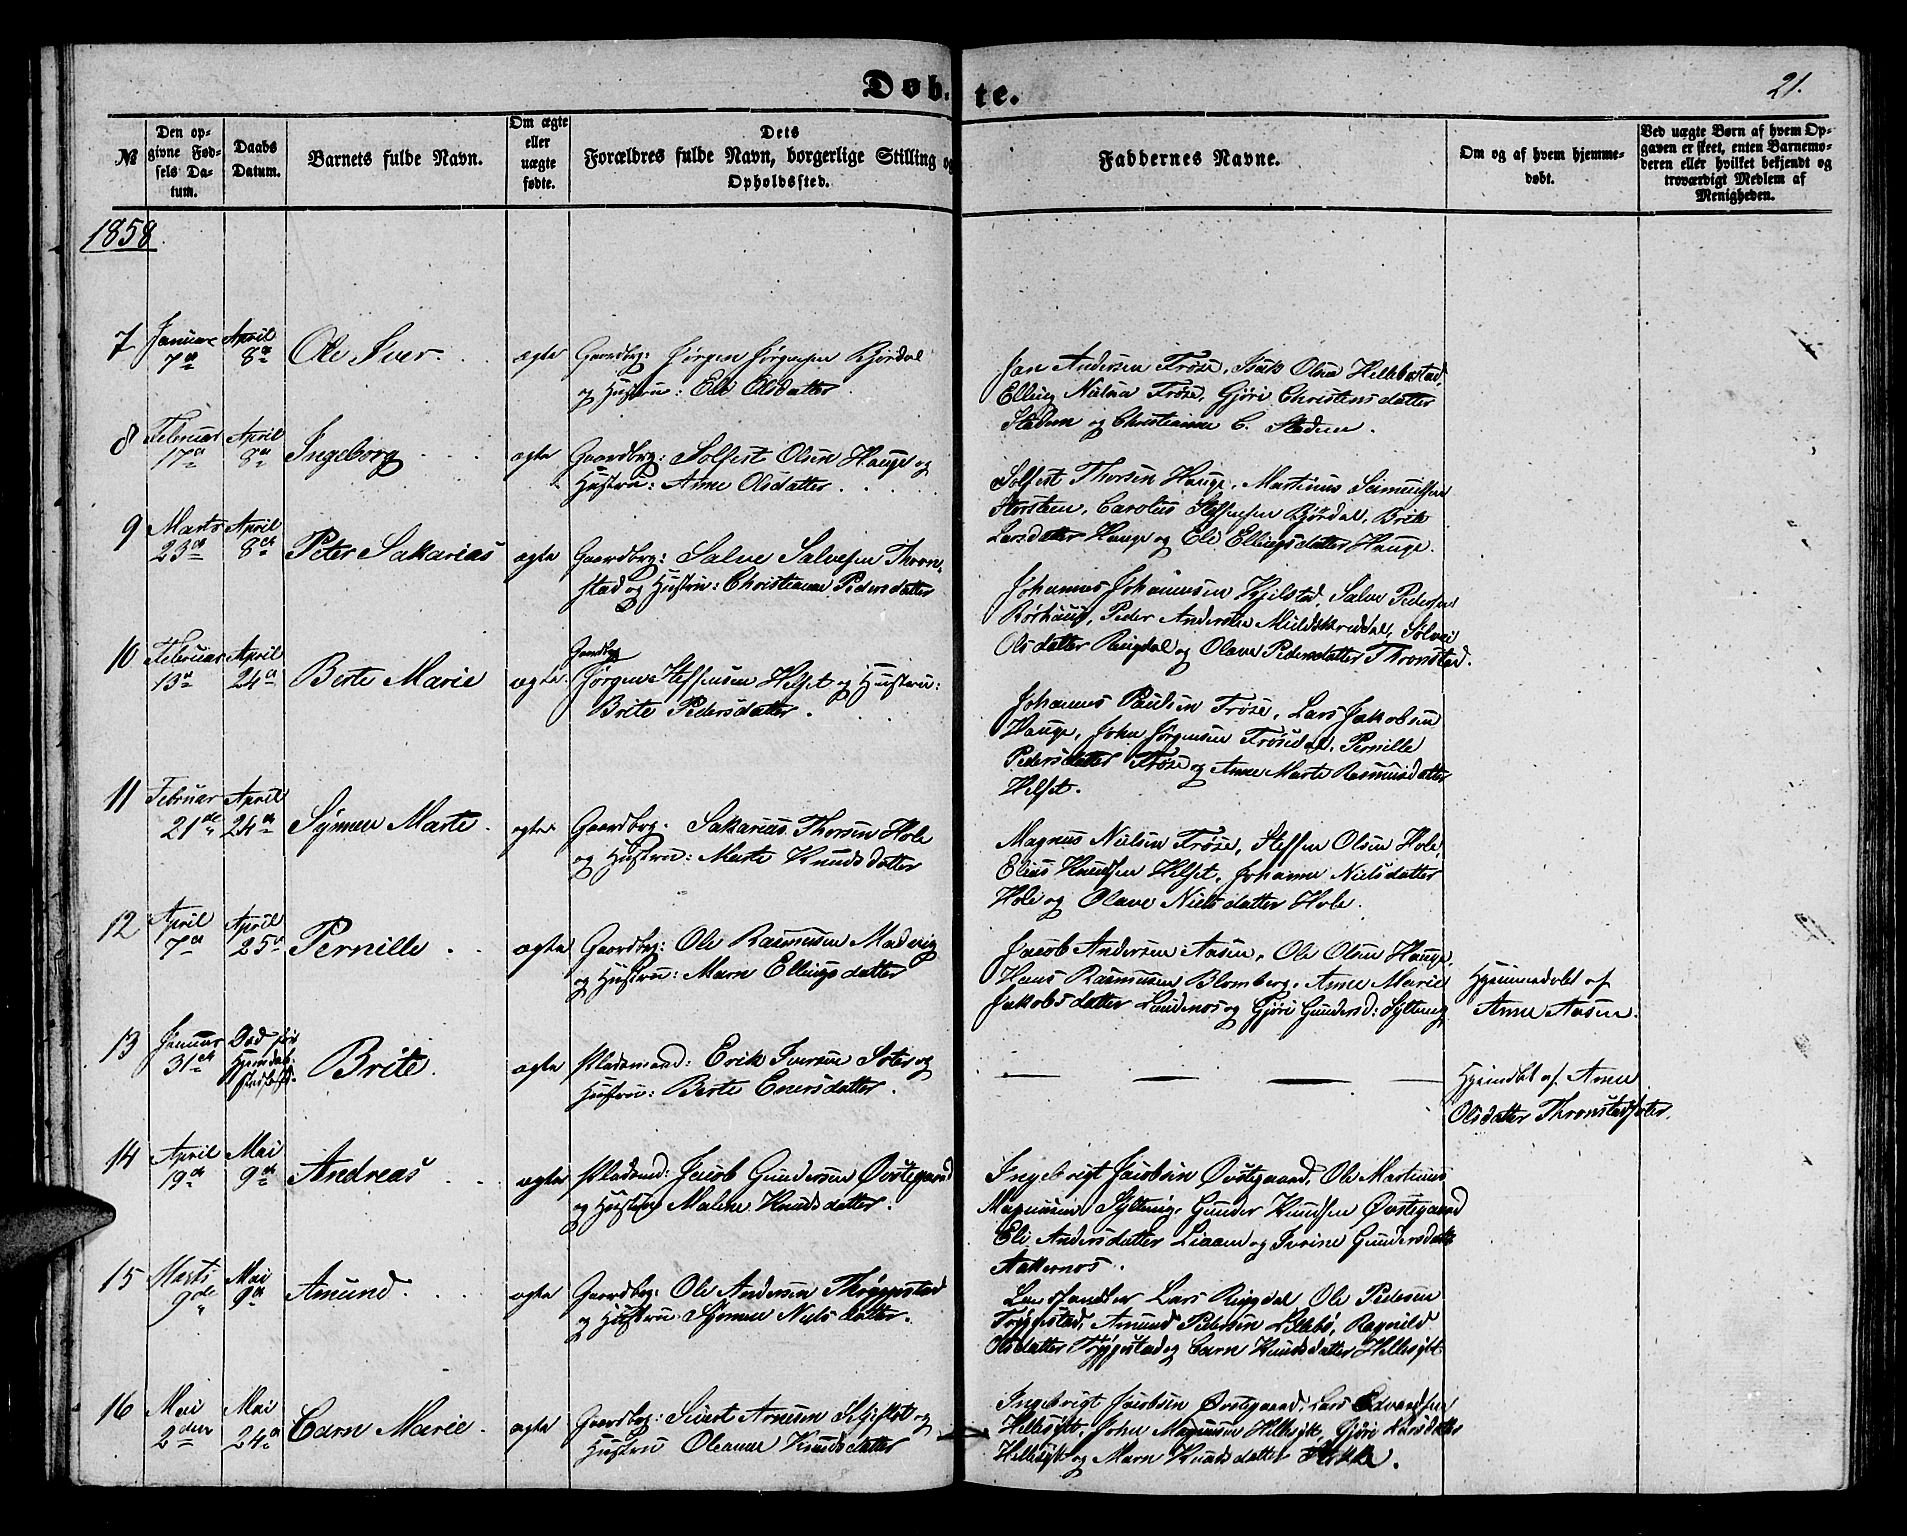 Døb-te.
21.
№
Den opgivne Fødsels Datum.
Daabs Datum.
Barnets fulde Navn.
Om ægte eller uægte fødte.
Dets Forældres fulde Navn, borgerlige Stilling og Opholdssted.
Faddernes Navne.
Om og af hvem hjemmedøbt.
Ved uægte Børn af hvem Opgaven er skeet, enten Barnemoderen eller hvilket bekjendt og troværdigt Medlem af Menigheden.
1858.
7 Januar 7de April 8de Ole Iver. ægte Gaardbrg: Jørgen Jørgensen Bjørdal
og Hustru: Eli Olsdatter.
Jan Andersen Frøse, Isak Olsen Hellebostad,
Elling Nielsen Frøse, Gjøri Christensdatter
Stadem og Christianne C. Stadem.
8 Februar 17de April 8de Ingeborg ægte Gaardbrg: Solfest Olsen Hauge og
Hustru: Anne Olsdatter.
Solfest Thorsen Hauge, Martinus Samuelsen
Horstem, Carolus Steffensen Bjørdal, Brite
Larsdatter Hauge og Eli Ellingsdatter Hauge.
9 Marts 23de April 8de Peter Sakarias ægte Gaardbrg: Salve Salvesen Thron-
stad og Hustru: Christianne Pedersdatter
Johannes Johannesen Kjelstad, Salve Pedersen
Rørhuus, Peder Andersen Muldskreddal, Sølvei
Olsdatter Ringdal og Olave Pedersdatter Thronstad.
10 Februar 13de April 24de Berte Marie ægte Gaardbrg
Jørgen Steffensen Helset og Hustru:
Brite Pedersdatter.
Johannes Paulsen Frøse, Lars Jakobsen
Hauge, John Jørgensen Frøsedal, Pernille
Pedersdatter Frøse og Anne Marte Rasmusdatter
Helset.
11 Februar 21de April 24de Synnev Marte. ægte Gaardbrg. Sakarias Thorsen Hole
og Hustru: Marte Knudsdatter
Magnus Nielsen Frøse, Steffen Olsen Hole,
Elias Knudsen Helset, Johanne Nielsdatter
Hole og Olave Nielsdatter Hole.
12 April 7de April 25de Pernille ægte Gaardbrg: Ole Rasmusen Madvig
og Hustru: Marn Ellingsdatter
Jacob Andersen Aasen, Ole Olsen Hauge,
Hans Rasmusen Blomberg, Anne Marie
Jakobsdatter Lundenes og Gjøri Gundersd: Sylteng
Hjemmedøbt af
Anne Aasen.
13 Januar 31te Død før Brite. ægte Pladsmand: Erik Iversen Sæter og
Hustru: Berte Enersdatter.
Hjemdøbt af Anne
Olsdatter Thronstadsæter.
14 April 19de Mai 9de Andreas ægte Pladsmd: Jacob Gundersen Øvstegaard
og Hustru Malene Knudsdatter.
Ingebrigt Jacobsen Øvstegaard, Ole Martinus
Magnusen Sylteng, Gunder Knudsen Øvstegaard
Eli Andersdatter Liaaen og Ivrine Gundersdatter
Aakernes.
15 Marts 9de Mai 9de Amund. ægte Gaardbrg: Ole Andersen Tryggestad
og Hustru Synneve Nielsdatter.
Lensmand Lars Ringdal, Ole Pedersen
Tryggestad, Amund Pedersen Lillebø, Ragnild
Olsdatter Tryggestad og Carn Knudsdatter Hellesylt
16 Mai 2den Mai 24de Carn Marie. ægte Gaardbrg: Sivert Arnesen Stadheim og
Hustru Oleanne Knudsdatter
Ingebrigt Jacobsen Øvstegaard, Lars Edvardsen
Hellesylt, John Magnusen Hellesylt, Gjøri Larsdatter
Hellesylt og Marn Knudsdatter